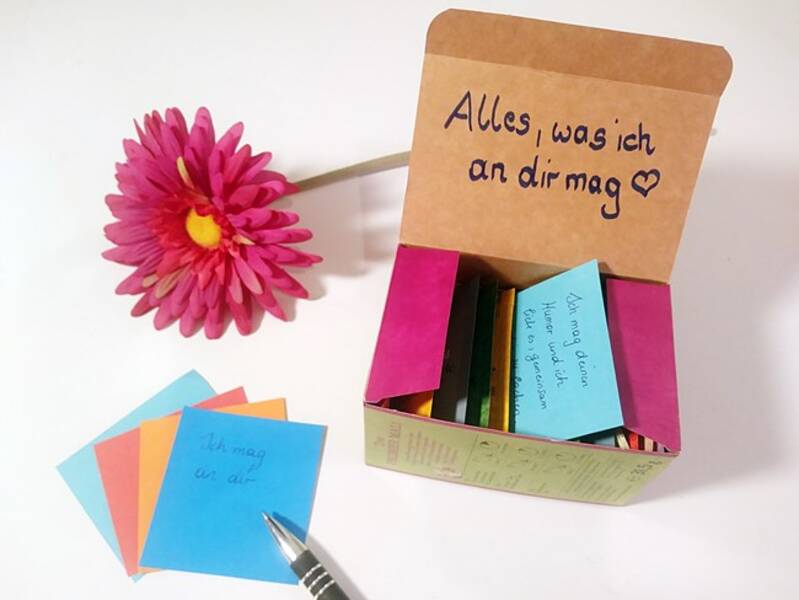 Alles, was ich
an dir mag ♡
Ich mag deinen
Humor und ich
liebe es, gemeinsam
zu lachen
Ich mag
an dir